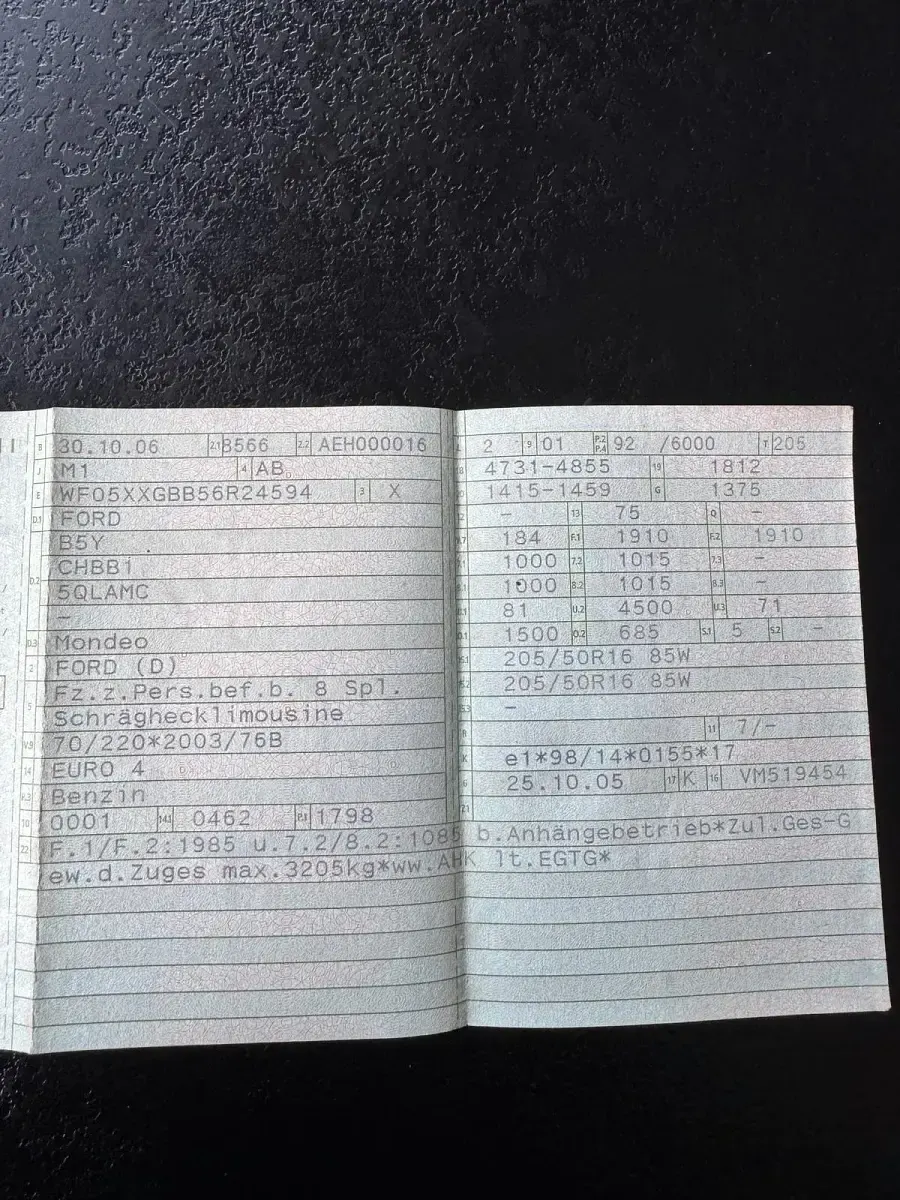 B 30.10.06 2.1 8566 2.2 AEH000016
J M1 4 AB
E WF05XXGBB56R24594 3 X
D.1 FORD
B5Y
D.2 CHBB1
5QLAMC
–
D.3 Mondeo
2 FORD (D)
5 Fz.z.Pers.bef.b. 8 Spl.
Schräghecklimousine
V.9 70/220*2003/76B
14 EURO 4
P.3 Benzin
10 0001 14.1 0462 P.1 1798
L 2 9 01 P.2 P.4 92 /6000 T 205
18 4731-4855 19 1812
20 1415-1459 G 1375
– 13 75 Q –
184 F.1 1910 F.2 1910
1000 7.2 1015 7.3 –
1000 8.2 1015 8.3 –
U.1 81 U.2 4500 U.3 71
O.1 1500 O.2 685 S.1 5 S.2 –
15.1 205/50R16 85W
15.2 205/50R16 85W
15.3 –
R 11 7/-
K e1*98/14*0155*17
6 25.10.05 17 K 16 VM519454
21
22 F.1/F.2:1985 u.7.2/8.2:1085 b.Anhängebetrieb*Zul.Ges-G
ew.d.Zuges max.3205kg*ww.AHK lt.EGTG*